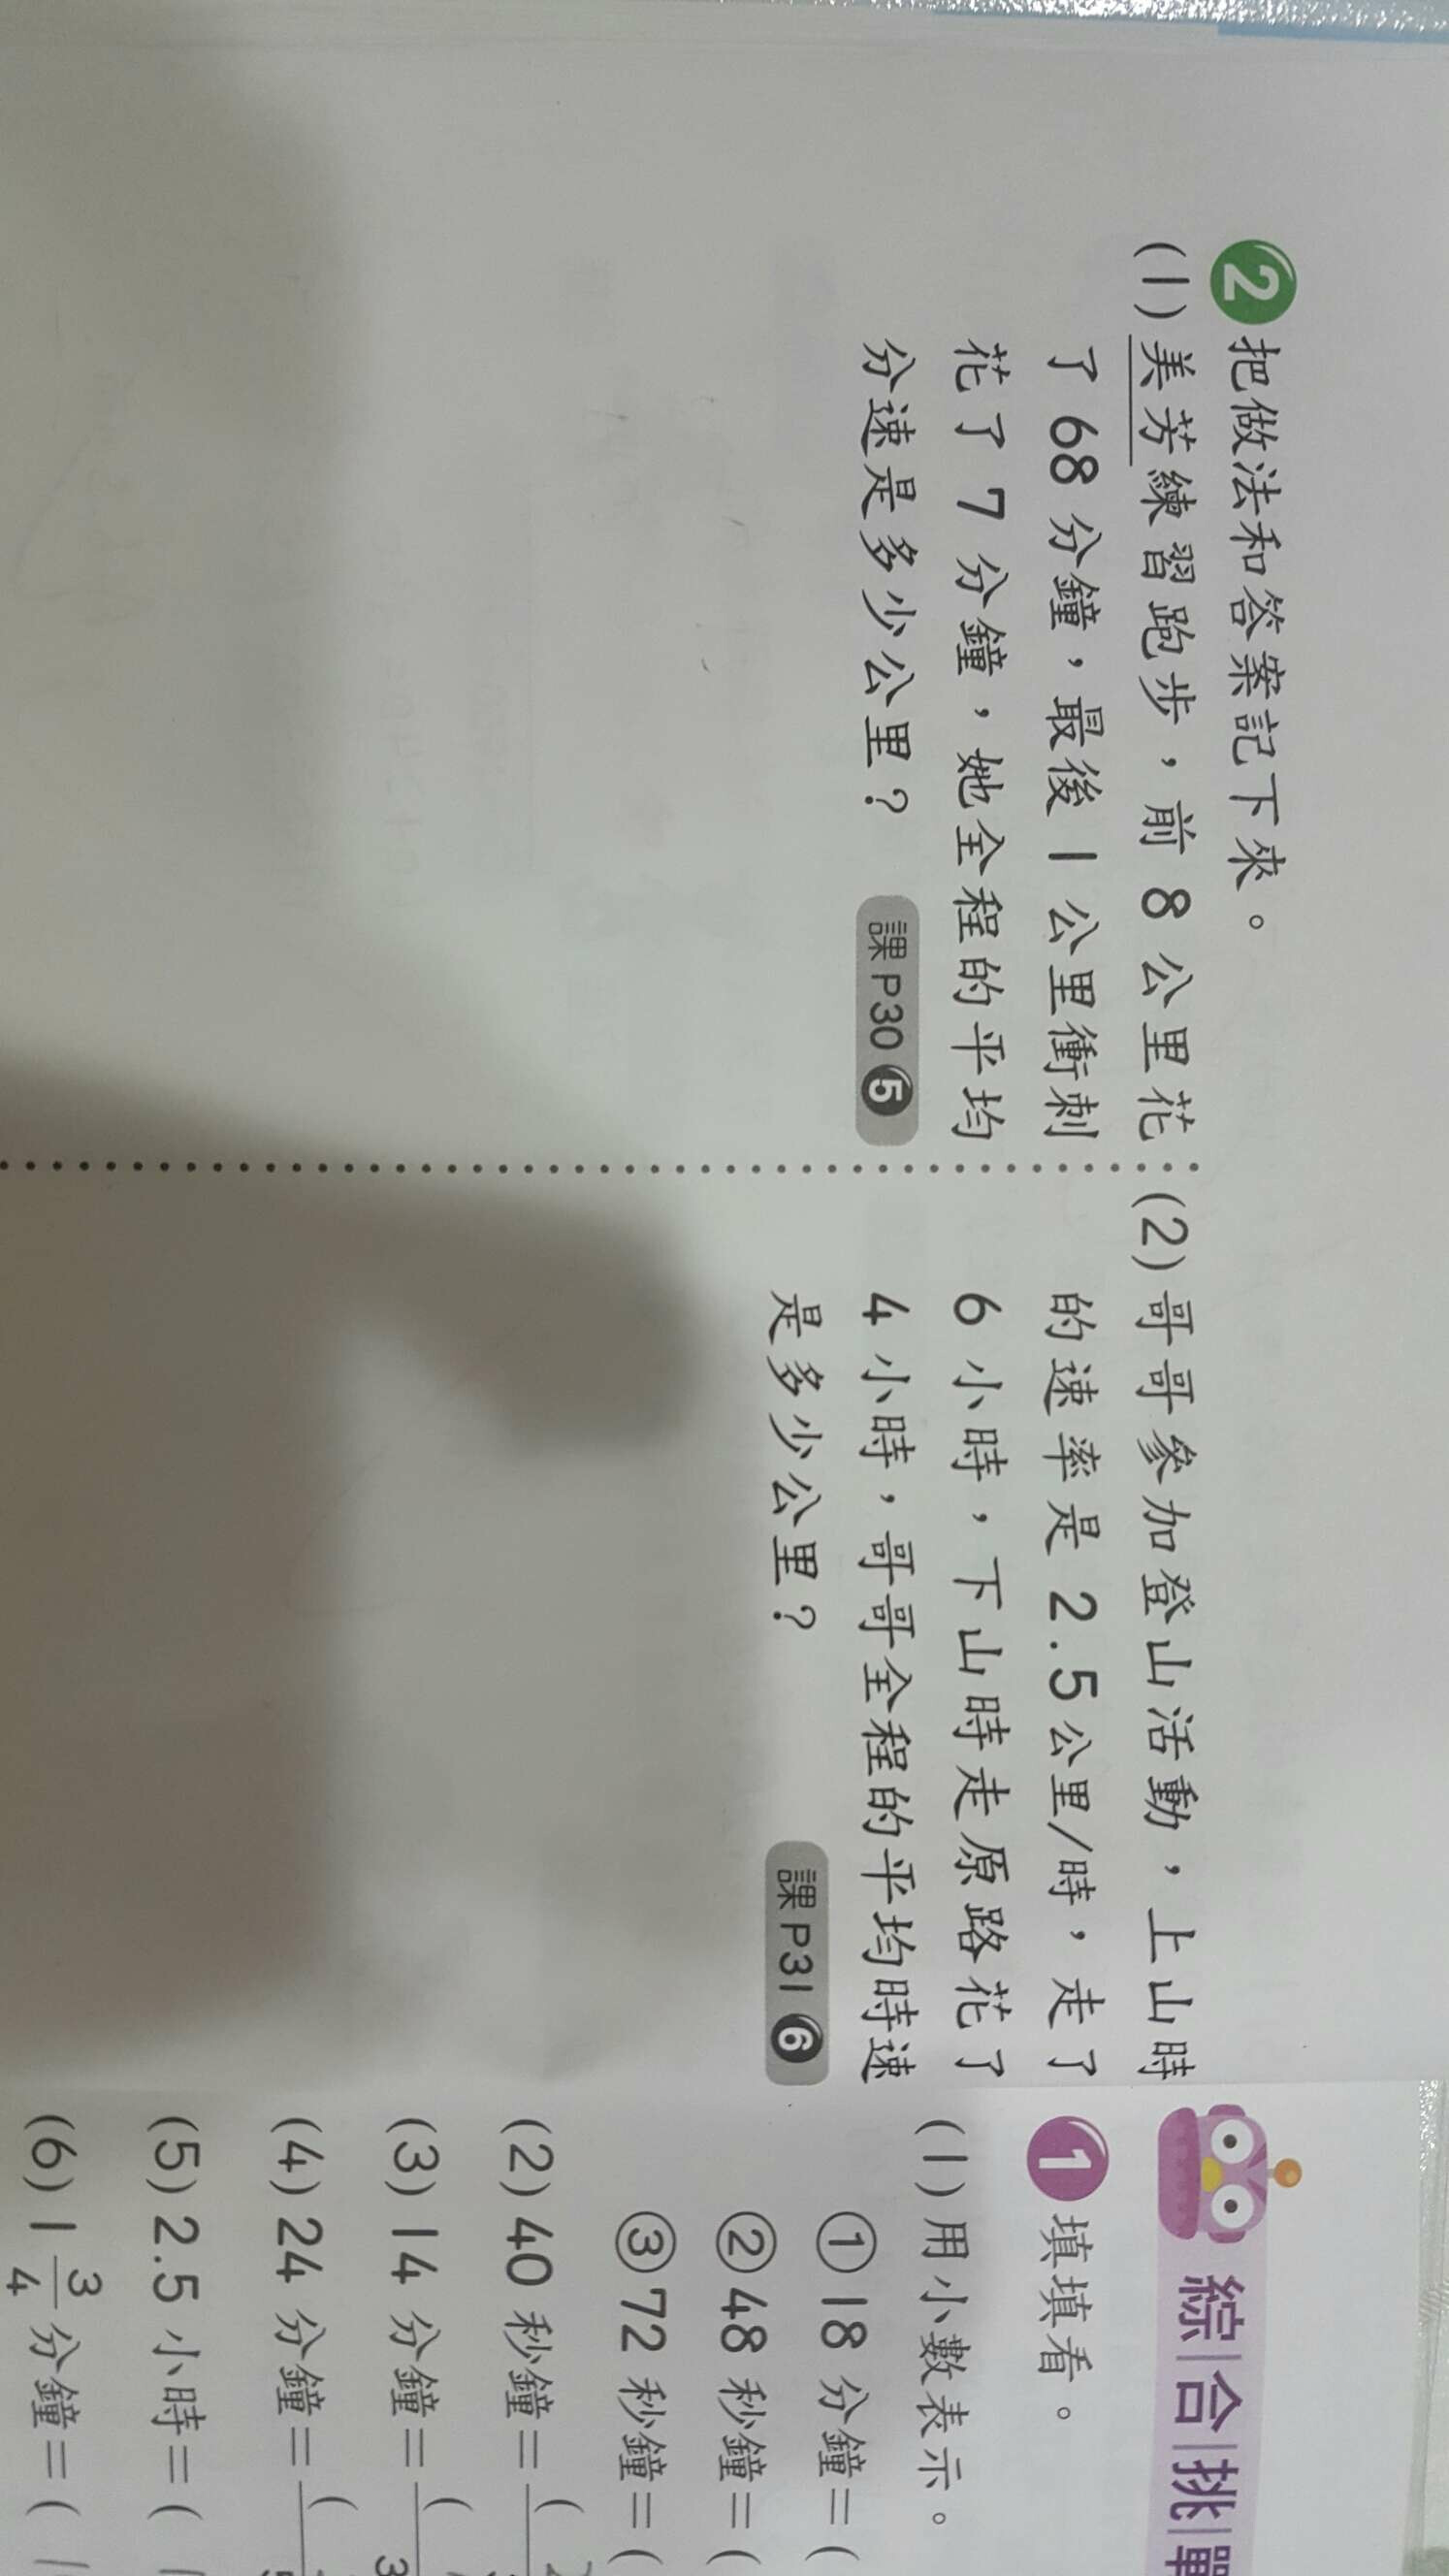 2 把做法和答案記下來。
(1) 美芳練習跑步，前 8 公里花
了 68 分鐘，最後 1 公里衝刺
花了 7 分鐘，她全程的平均
分速是多少公里？
課 P30 5
(2) 哥哥參加登山活動，上山時
的速率是 2.5公里/時，走了
6 小時，下山時走原路花了
4 小時，哥哥全程的平均時速
是多少公里？
課 P31 6
綜合挑
1 填填看。
(1) 用小數表示。
① 18 分鐘＝(
② 48 秒鐘＝(
③ 72 秒鐘＝(
(2) 40 秒鐘＝(
(3) 14 分鐘＝(
(4) 24 分鐘＝(
(5) 2.5 小時＝(
(6) 1 3/4 分鐘＝(